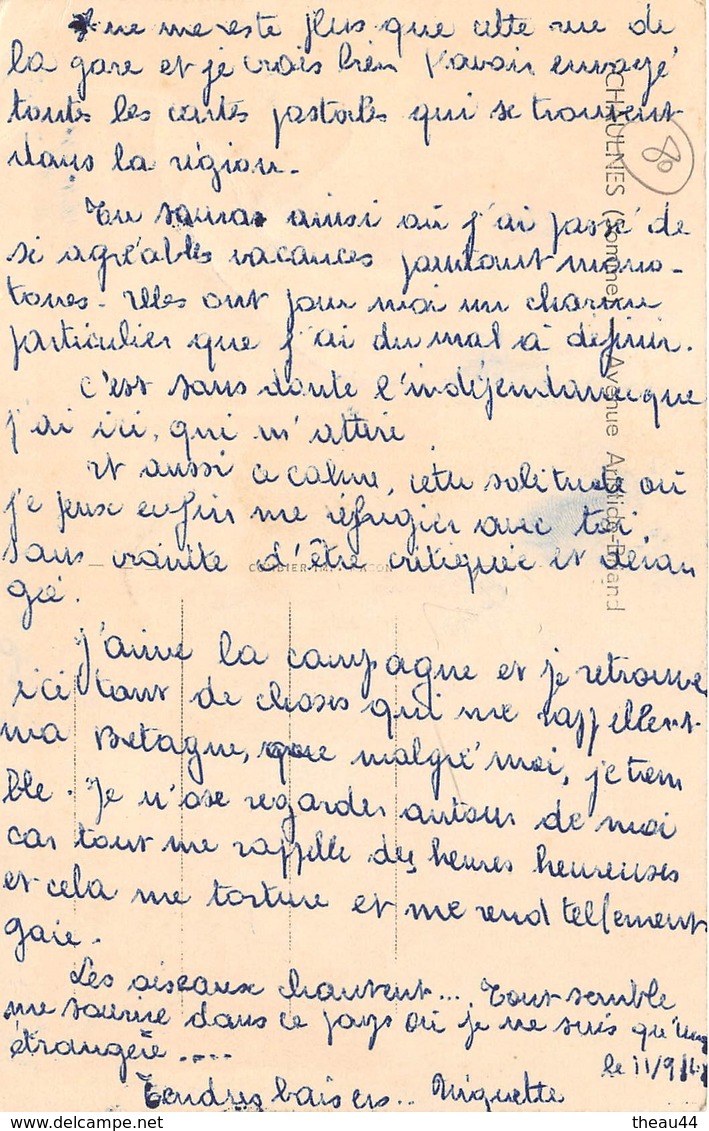 Il ne me reste plus que cette rue de
la gare et je crois bien t'avoir envoyé
toutes les cartes postales qui se trouvent
dans la région.
Tu sauras ainsi où j'ai passé de
si agréables vacances pourtant mono-
tones. Elles ont pour moi un charme
particulier que j'ai du mal à définir.
C'est sans doute l'indépendance que
j'ai ici, qui m'attire
et aussi ce calme, cette solitude où
je peux enfin me réfugier avec toi
sans crainte d'être critiquée et déran
gée.
J'aime la campagne et je retrouve
ici tant de choses qui me rappellent
ma Bretagne, que malgré moi, je trem
ble. Je n'ose regarder autour de moi
car tout me rappelle des heures heureuses
et cela me torture et me rend tellement
gaie.
Les oiseaux chantent... Tout semble
me sourire dans ce pays où je ne suis qu'une
étrangère....
le 11/9/
Tendres baisers.. Miquette
80
CHAULNES (Somme) - Avenue Aristide-Briand
theau44